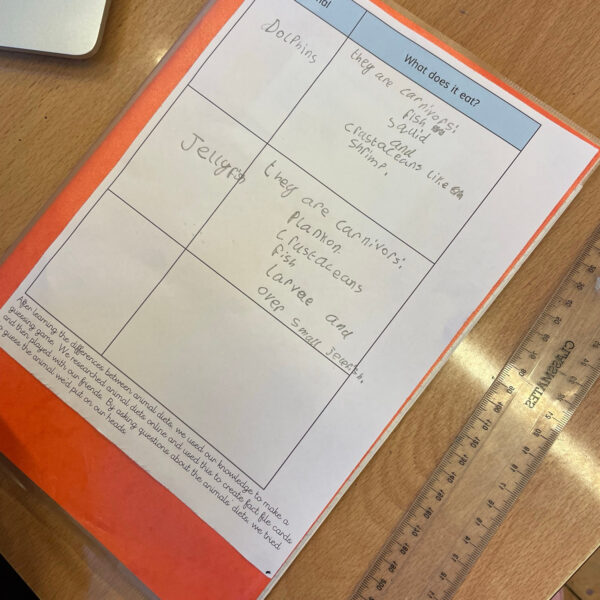 What does it eat?
Dolphins
they are carnivors:
fish
squid
and
crustaceans like
shrimp.
Jellyfish
they are carnivors:
Plankon
crustaceans
fish
larvee and
over small
After learning the differences between animal diets, we used our knowledge to make a
guessing game. We researched animal diets online and used this to create fact file cards
and then played with our friends. By asking questions about the animals' diets, we tried
guess the animal we'd put on our heads.
CLASSMATES